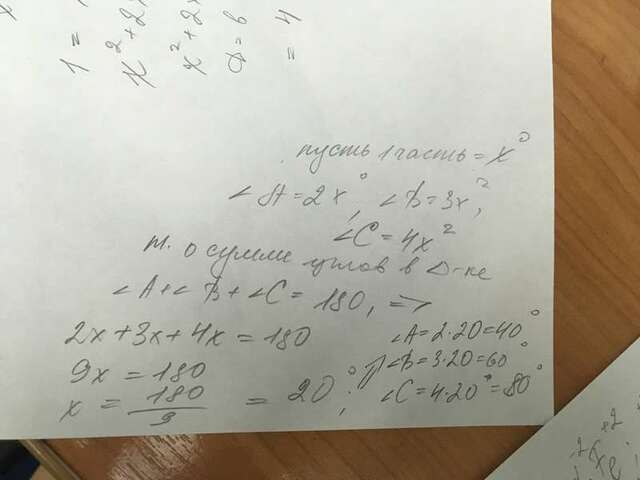 пусть 1 часть = x°
∠A = 2x°, ∠B = 3x°,
∠C = 4x°
т. о сумме углов в Δ-ке
∠A + ∠B + ∠C = 180, =>
2x + 3x + 4x = 180
9x = 180
x = 180/9 = 20°,
∠A = 2·20 = 40°
∠B = 3·20 = 60°,
∠C = 4·20° = 80°
1 =
x² + 2x
x² + 2x
= 4